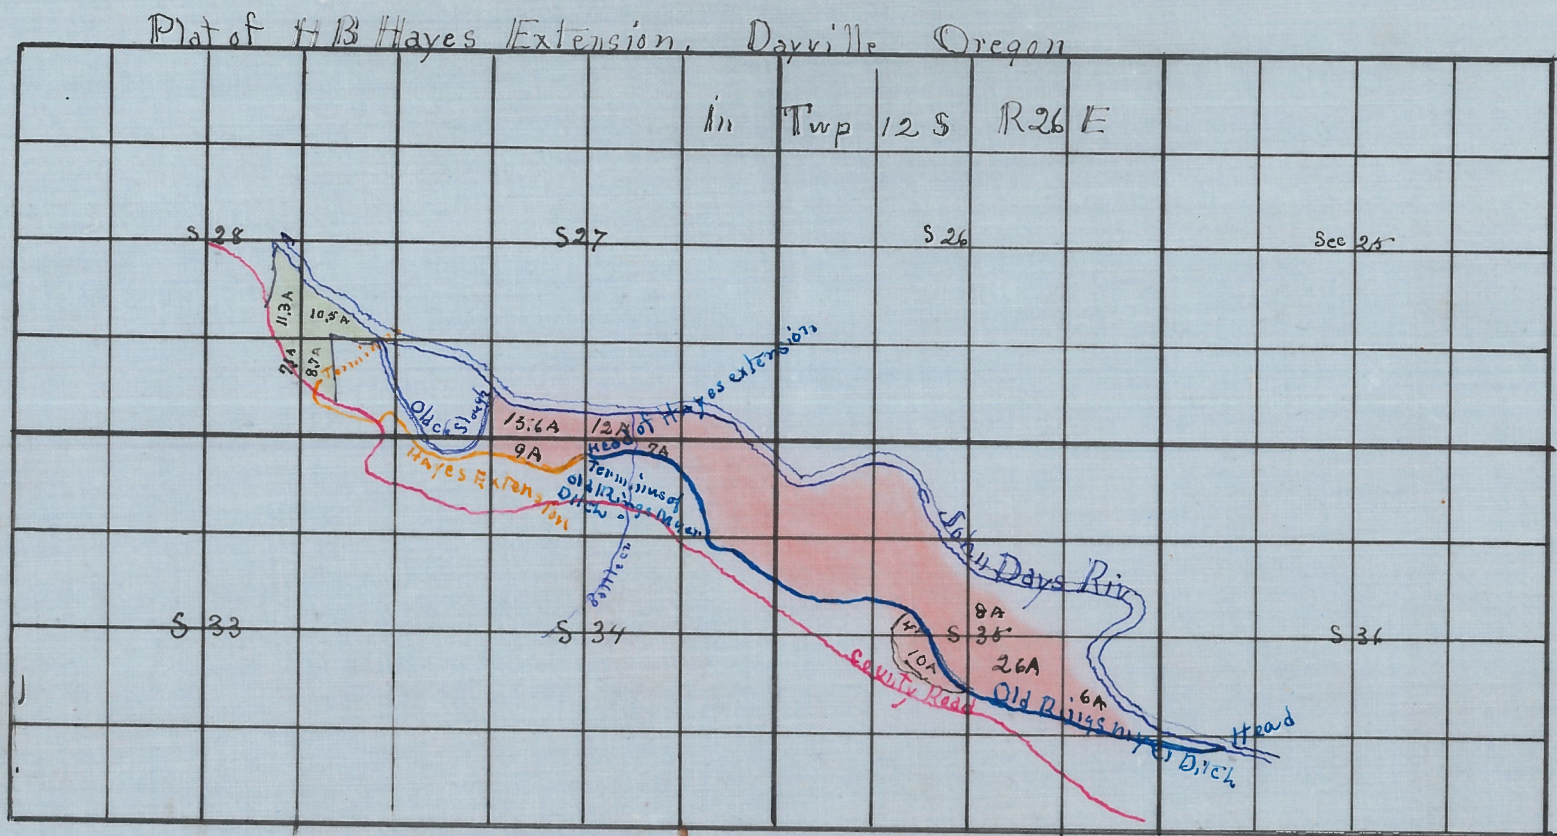 Plat of HB Hayes Extension. Dayville Oregon
in Twp 12 S R26 E
S 28
S 27
S 26
Sec 25
11.3A
10.5 A
8.7A
Terminus
Old Slough
13.6A
12A
Head of Hayes extension
9A
7A
Hayes Extension
Terminus of
Old Ringsmyer
Ditch
John Days Riv
8A
S 33
S 34
S 35
S 36
10A
26A
6A
County Road
Old Ringsmyer Ditch
Head